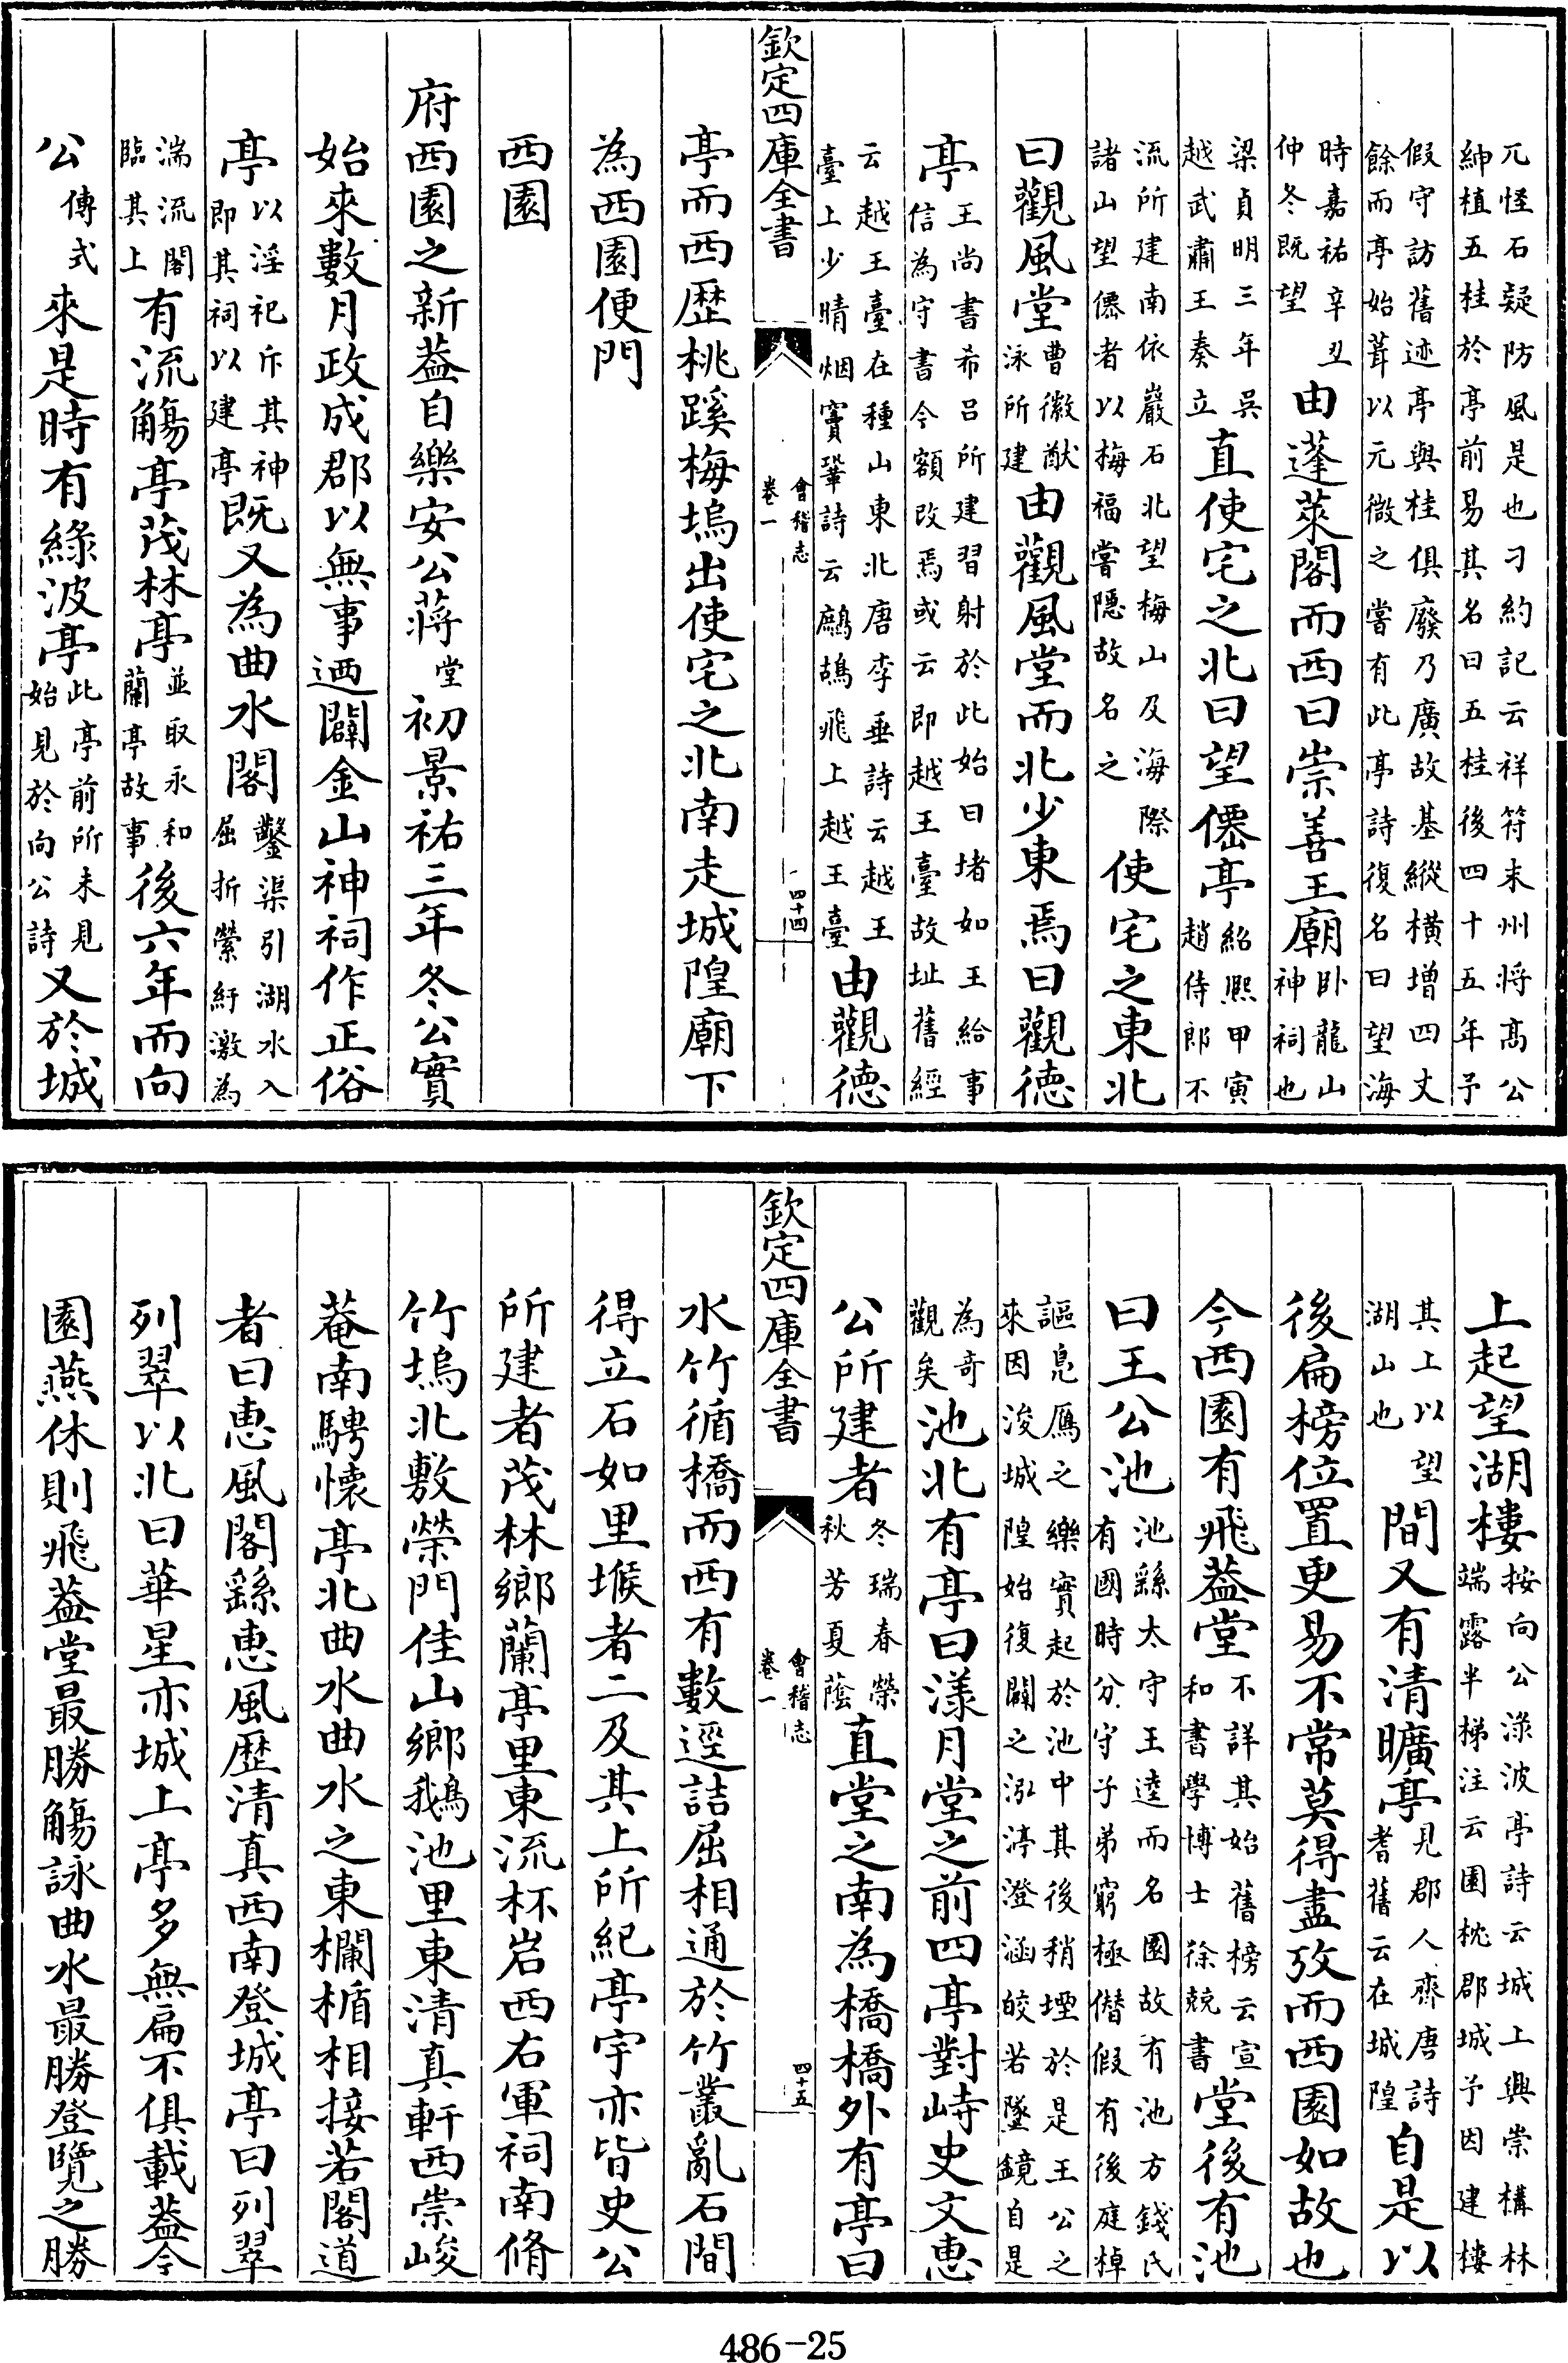 兀怪石疑防風是也刁約記云祥符末州將高公
紳植五桂於亭前易其名曰五桂後四十五年予
假守訪舊迹亭與桂俱廢乃廣故基縱橫增四丈
餘而亭始葺以元微之嘗有此亭詩復名曰望海
時嘉祐辛丑
仲冬既望
由蓬萊閣而西曰崇善王廟
卧龍山
神祠也
梁貞明三年吳
越武肅王奏立
直使宅之北曰望僊亭
紹熙甲寅
趙侍郎不
流所建南依巖石北望梅山及海際
諸山望僊者以梅福嘗隱故名之
使宅之東北
曰觀風堂
曹徽猷
泳所建
由觀風堂而北少東焉曰觀德
亭
王尚書希呂所建習射於此始曰堵如王給事
信為守書今額改焉或云即越王臺故址舊經
云越王臺在種山東北唐李垂詩云越王
臺上少晴烟竇鞏詩云鷓鴣飛上越王臺
由觀德
欽定四庫全書
會稽志
卷一
四十四
亭而西歴桃蹊梅塢出使宅之北南走城隍廟下
為西園便門
西園
府西園之新葢自樂安公蔣
堂
初景祐三年冬公實
始來數月政成郡以無事迺闢金山神祠作正俗
亭
以淫祀斥其神
即其祠以建亭
既又為曲水閣
鑿渠引湖水入
屈折縈紆激為
湍流閣
臨其上
有流觴亭茂林亭
並取永和
蘭亭故事
後六年而向
公
傳式
來是時有緑波亭
此亭前所未見
始見於向公詩
又於城
上起望湖樓
按向公渌波亭詩云城上興崇構林
端露半梯注云園枕郡城予因建樓
其上以望
湖山也
間又有清曠亭
見郡人齊唐詩
耆舊云在城隍
自是以
後扁榜位置更易不常莫得盡攷而西園如故也
今西園有飛葢堂
不詳其始舊榜云宣
和書學博士徐兢書
堂後有池
曰王公池
池繇太守王逵而名園故有池方錢氏
有國時分守子弟窮極僣假有後庭棹
謳鳬鴈之樂實起於池中其後稍堙於是王公之
來因浚城隍始復闢之泓渟澄涵皎若墜鏡自是
為奇
觀矣
池北有亭曰漾月堂之前四亭對峙史文惠
公所建者
冬瑞春榮
秋芳夏蔭
直堂之南為橋橋外有亭曰
欽定四庫全書
會稽志
卷一
四十五
水竹循橋而西有數逕詰屈相通於竹叢亂石間
得立石如里堠者二及其上所紀亭宇亦皆史公
所建者茂林鄉蘭亭里東流杯岩西右軍祠南脩
竹塢北敷榮門佳山鄉鵞池里東清真軒西崇峻
菴南騁懷亭北曲水曲水之東欄楯相接若閣道
者曰惠風閣繇惠風歴清真西南登城亭曰列翠
列翠以北曰華星亦城上亭多無扁不俱載葢今
園燕休則飛葢堂最勝觴詠曲水最勝登覽之勝
486-25